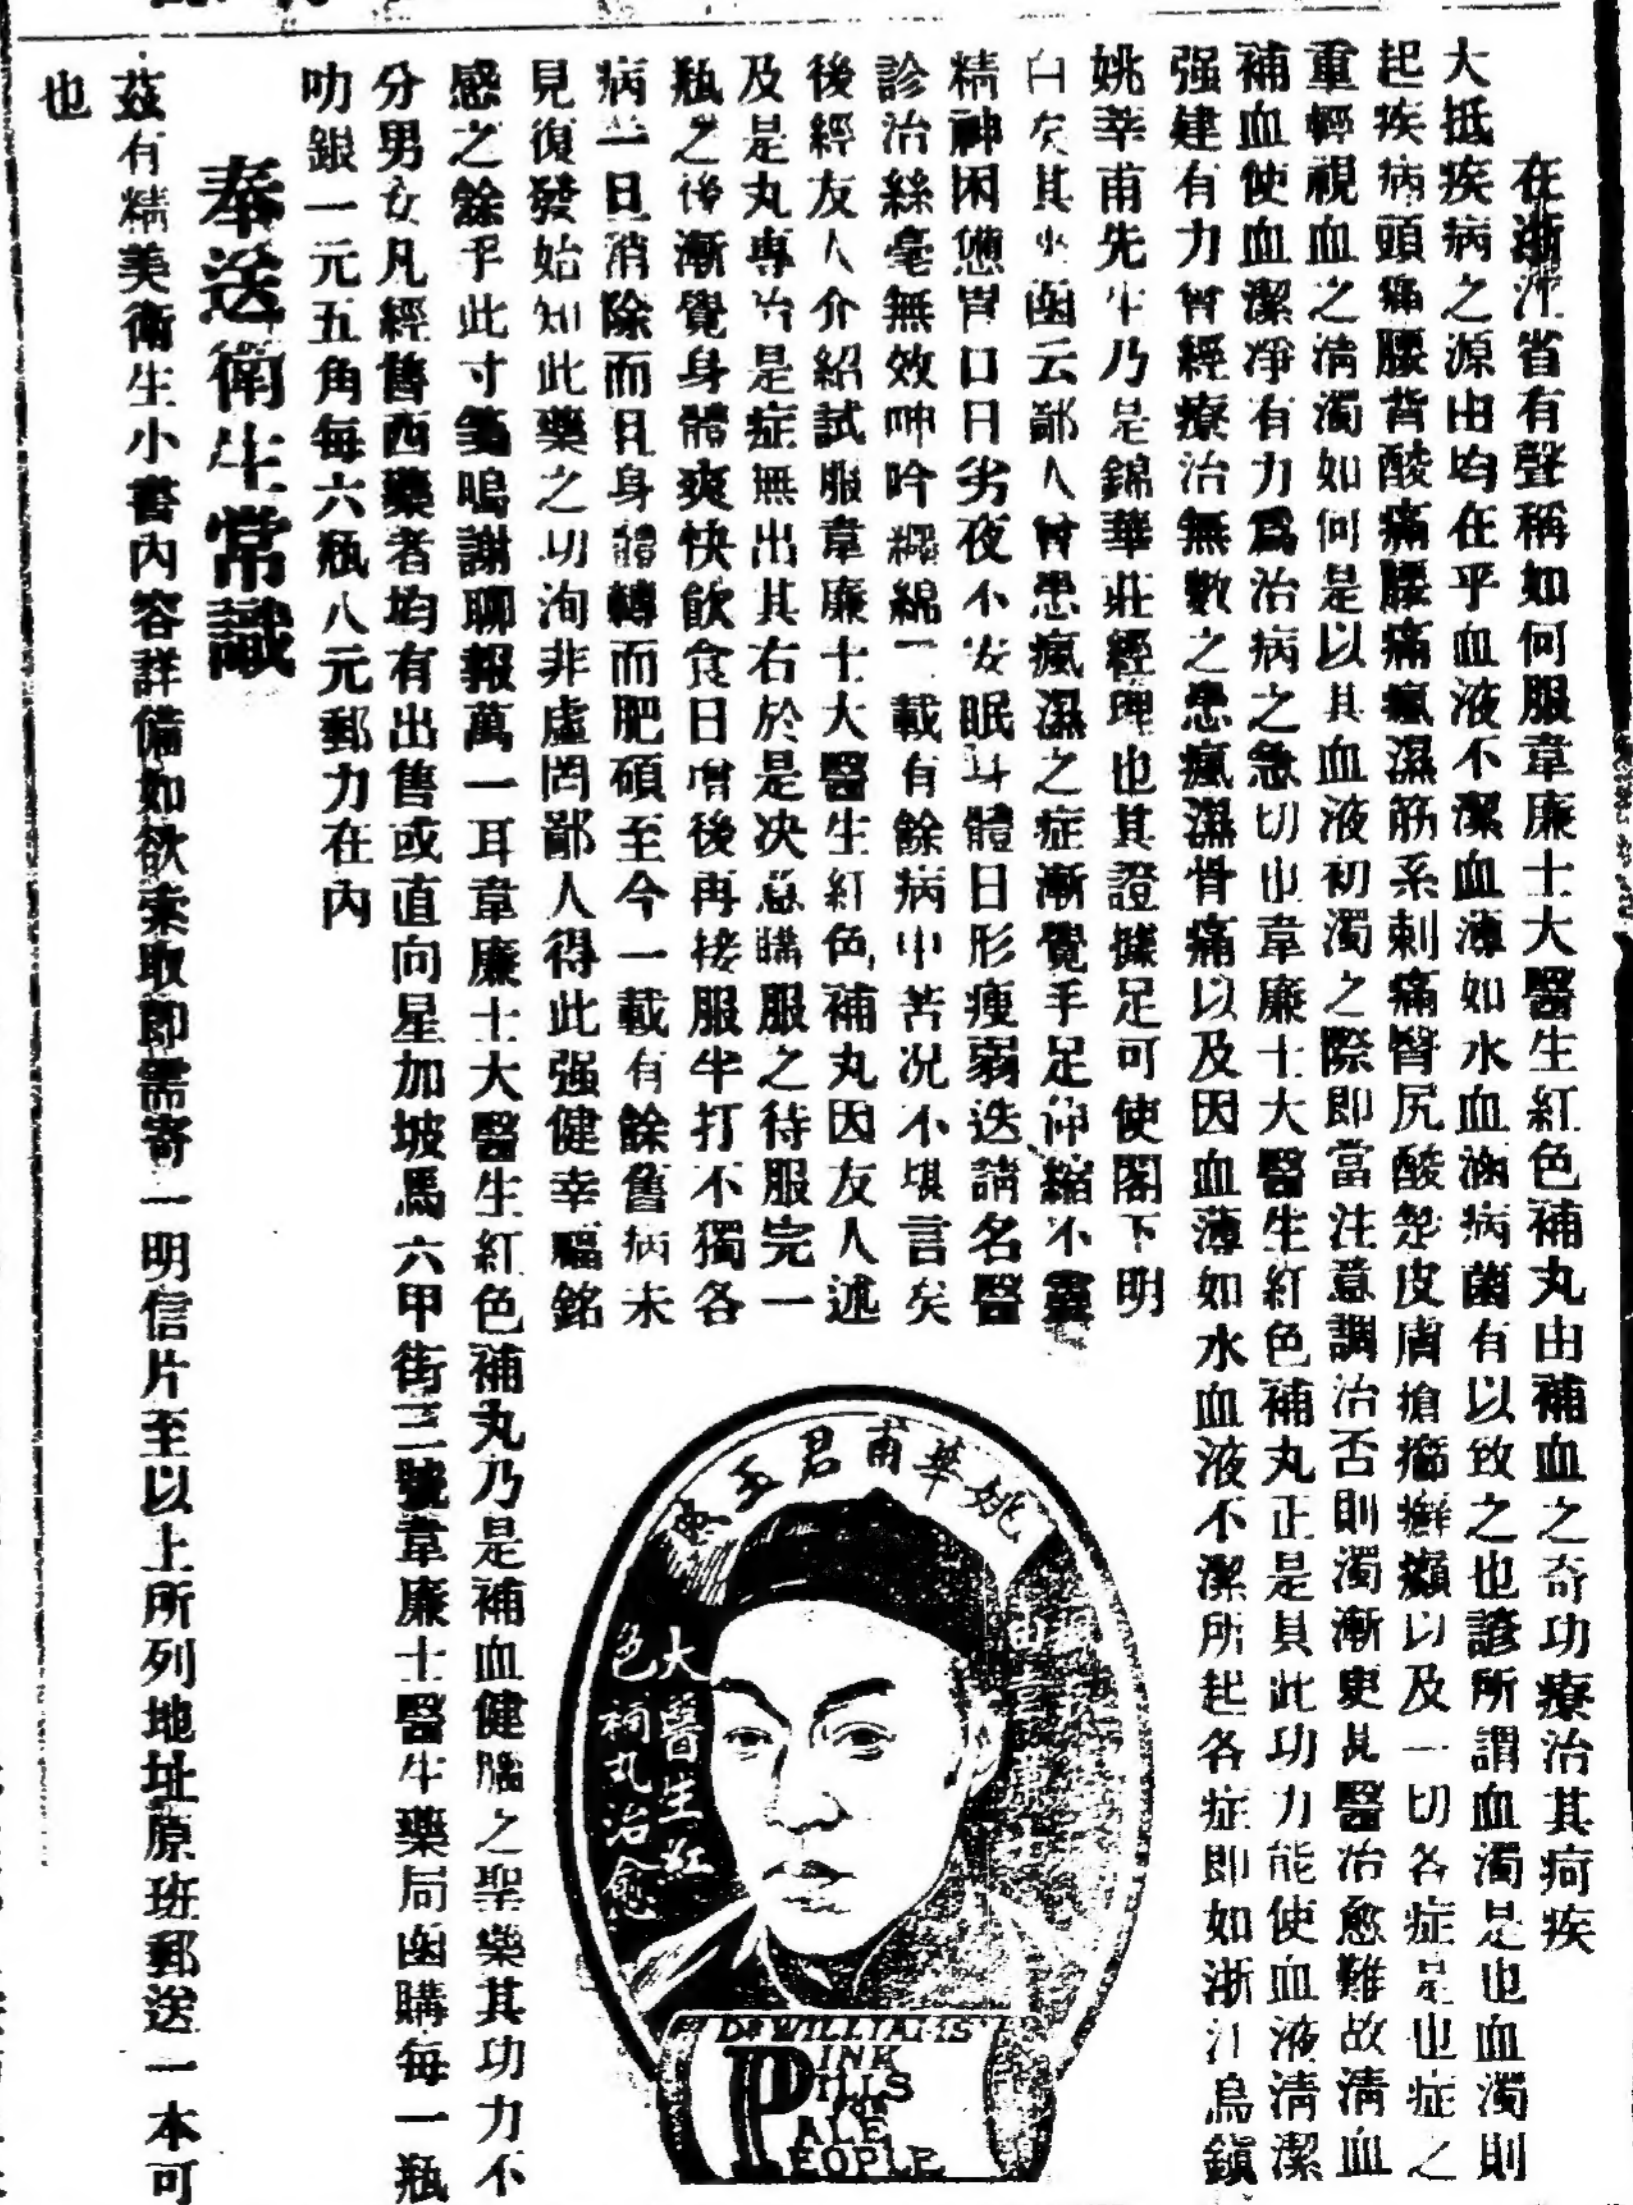 在浙江省有聲稱如何服韋廉士大醫生紅色補丸由補血之奇功療治其疴疾
大抵疾病之源由均在乎血液不潔血薄如水血滿病菌有以致之也諺所謂血濁是也血濁則
起疾病頭痛腰背酸痛腰痛瘋濕筋系刺痛腎尻酸楚皮膚瘡癤癬癩以及一切各症是也症之
重輕視血之清濁如何是以其血液初濁之際即當注意調治否則濁漸更甚醫治愈難故清血
補血使血潔凈有力爲治病之急切也韋廉士大醫生紅色補丸正是具此功力能使血液清潔
强建有力曾經療治無數之患瘋濕骨痛以及因血薄如水血液不潔所起各症即如浙江烏鎭
姚莘甫先生乃是錦華莊經理也其證據足可使閣下明
白矣其來函云鄙人曾患瘋濕之症漸覺手足伸縮不靈
精神困憊胃口日劣夜不安眠身體日形瘦弱迭請名醫
診治絲毫無效呻吟纏綿一載有餘病中苦况不堪言矣
後經友人介紹試服韋廉士大醫生紅色補丸因友人述
及是丸專治是症無出其右於是决意購服之待服完一
瓶之後漸覺身體爽快飲食日增後再接服半打不獨各
病一旦消除而且身體轉而肥碩至今一載有餘舊病未
見復發始知此藥之功洵非虛罔鄙人得此强健幸福銘
感之餘乎此寸箋鳴謝聊報萬一耳韋廉士大醫生紅色補丸乃是補血健腦之聖藥其功力不
分男女凡經售西藥者均有出售或直向星加坡馬六甲街三號韋廉士醫生藥局函購每一瓶
叻銀一元五角每六瓶八元郵力在內
奉送衛生常識
茲有精美衛生小書內容詳備如欲索取即需寄一明信片至以上所列地址原班郵送一本可
也
姚莘甫君玉
大醫生紅
色補丸治愈
DR WILLIAMS'
PINK
PILLS
FOR
PALE
PEOPLE